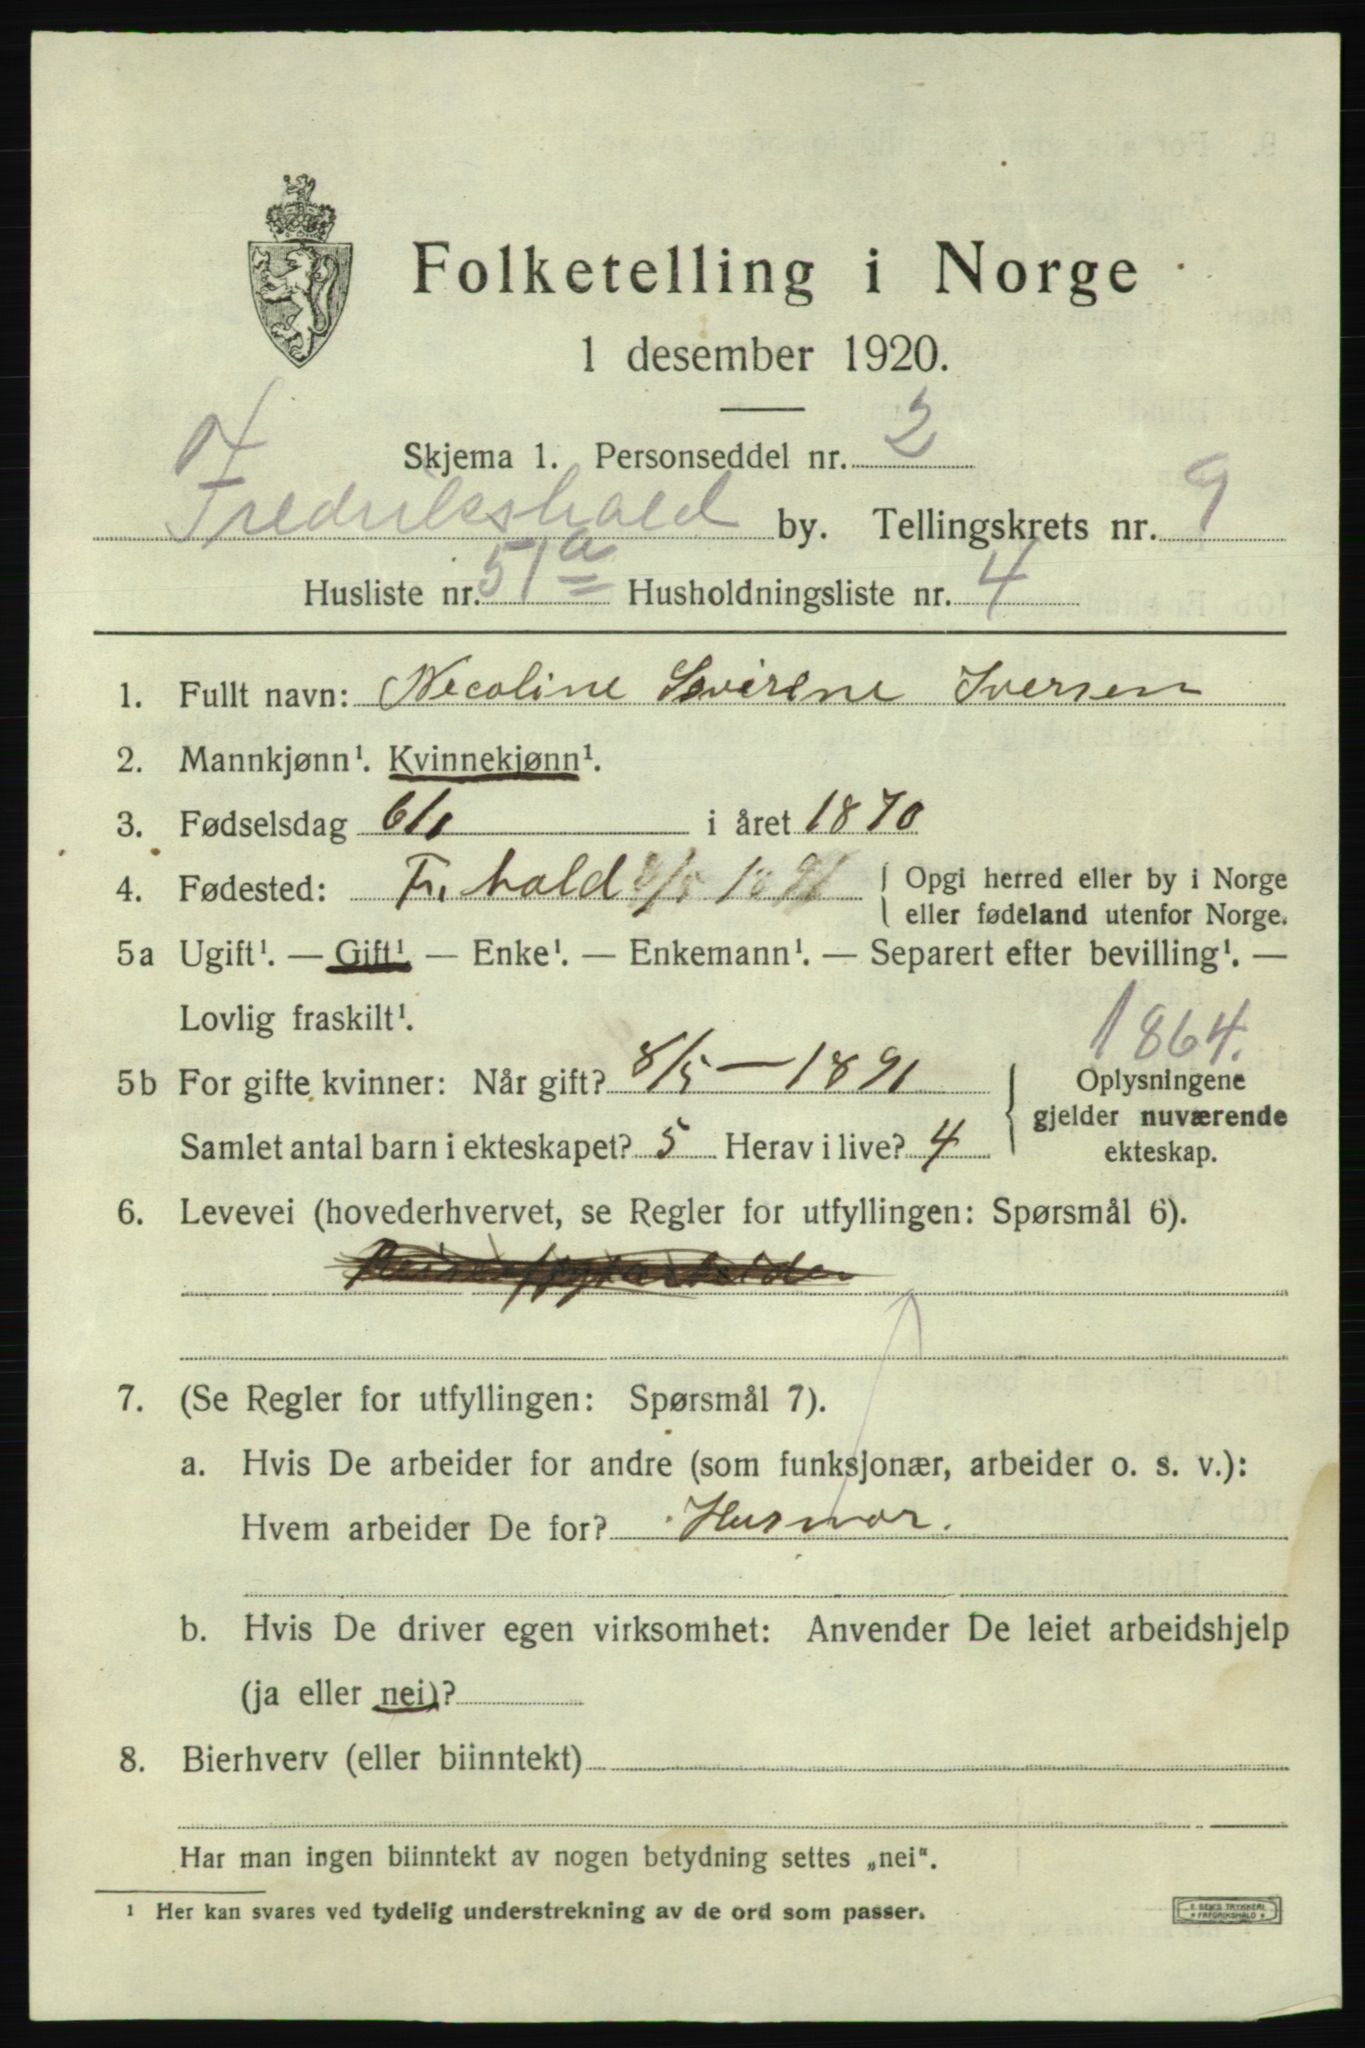 Folketelling i Norge
1 desember 1920.
Skjema 1. Personseddel nr. 2
Fredrikshald by. Tellingskrets nr. 9
Husliste nr. 51a Husholdningsliste nr. 4
1. Fullt navn: Necoline Sevirene Iversen
2. Mannkjønn¹. Kvinnekjønn¹.
3. Fødselsdag 6/1 i året 1870
4. Fødested: Fr. hald 8/5 1891 Opgi herred eller by i Norge
eller fødeland utenfor Norge.
5a Ugift¹. — Gift¹ — Enke¹. — Enkemann¹. — Separert efter bevilling¹. —
Lovlig fraskilt¹.
1864.
5b For gifte kvinner: Når gift? 8/5 — 1891 Oplysningene
gjelder nuværende
Samlet antal barn i ekteskapet? 5 Herav i live? 4 ekteskap.
6. Levevei (hovederhvervet, se Regler for utfyllingen: Spørsmål 6).
7. (Se Regler for utfyllingen: Spørsmål 7).
a. Hvis De arbeider for andre (som funksjonær, arbeider o. s. v.):
Hvem arbeider De for? Husmor.
b. Hvis De driver egen virksomhet: Anvender De leiet arbeidshjelp
(ja eller nei)?
8. Bierhverv (eller biinntekt)
Har man ingen biinntekt av nogen betydning settes „nei“.
¹ Her kan svares ved tydelig understrekning av de ord som passer.
E. SEMS TRYKKERI
FREDRIKSHALD